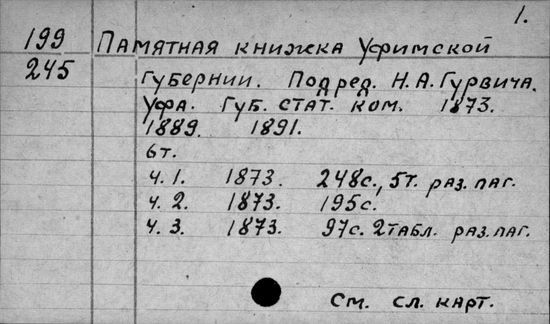 1.
199 Памятная книжка Уфимской
245 губернии. Под ред. Н.А. Гурвича.
Уфа. Губ. стат. ком. 1873.
1889. 1891.
6т.
ч. 1. 1873. 248с., 5т. раз. паг.
ч. 2. 1873. 195с.
ч. 3. 1873. 97с. 2табл. раз. паг.
См. сл. карт.